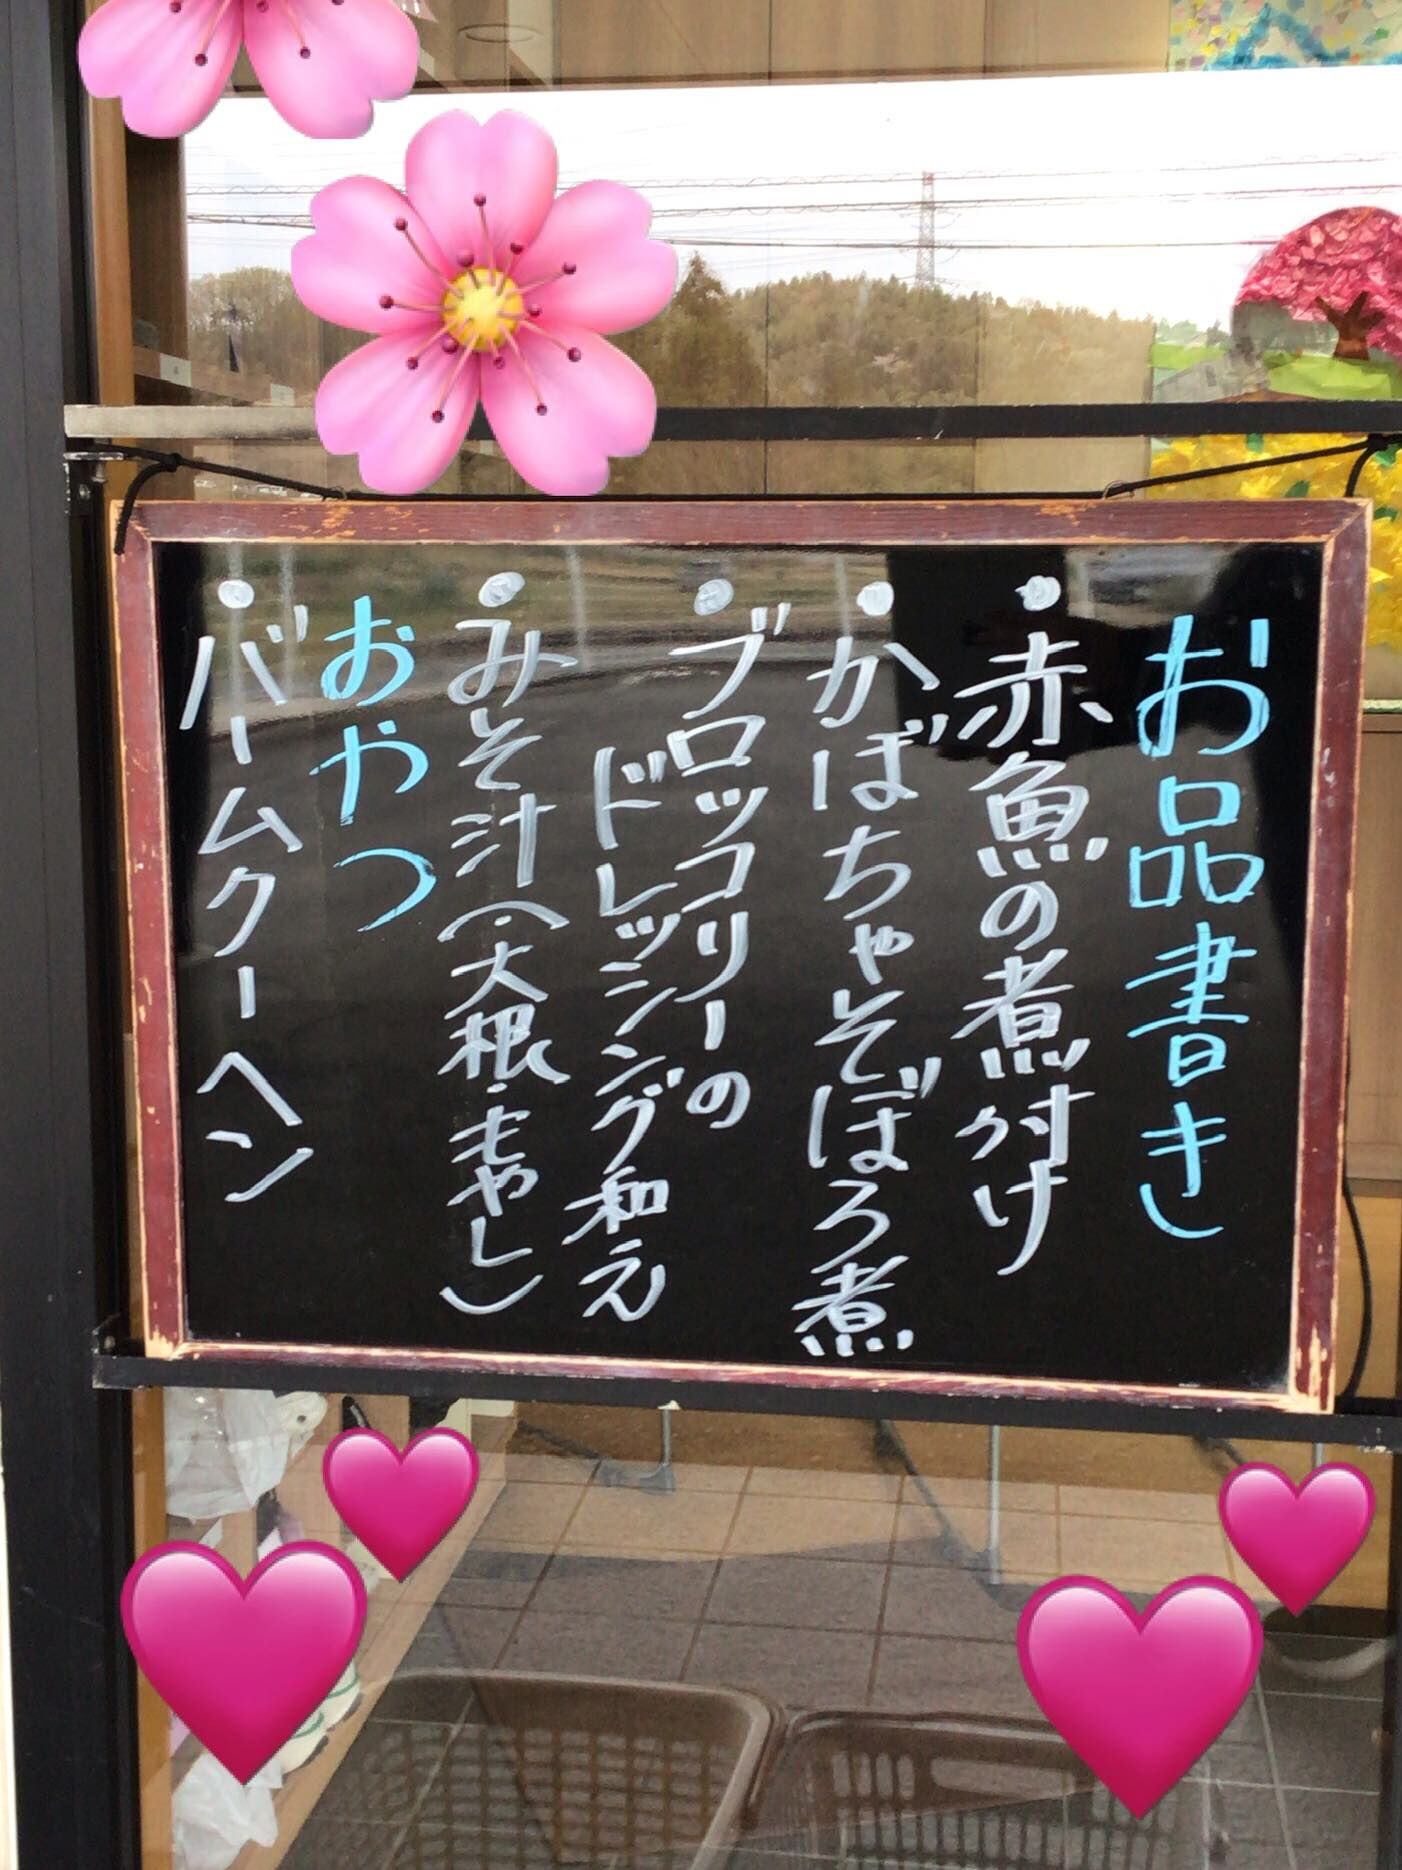 お品書き
・赤魚の煮付け
・かぼちゃそぼろ煮
・ブロッコリーの
ドレッシング和え
・みそ汁(大根・もやし)
おやつ
・バームクーヘン